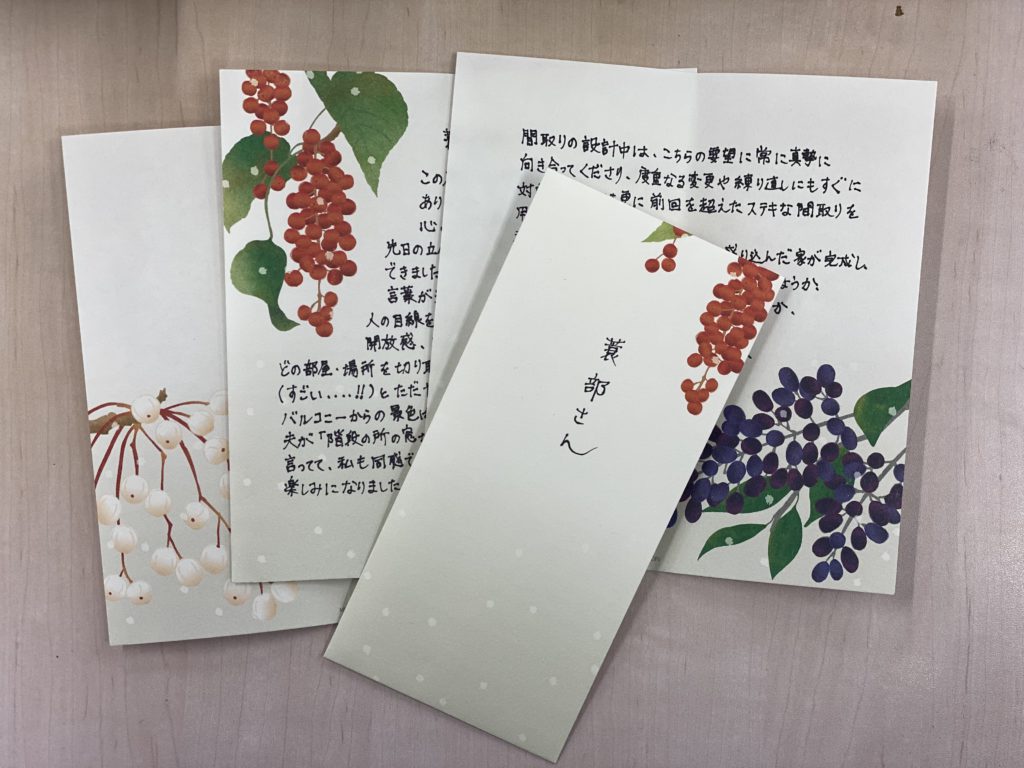 この
あり
心
先日の立
できました
言葉が
人の目線を
開放感、
どの部屋・場所を切り取
(すごい....!!)とただ
バルコニーからの景色は
夫が「階段の所の窓
言ってて、私も同感で
楽しみになりました
間取りの設計中は、こちらの要望に常に真摯に
向き合ってくださり、度重なる変更や練り直しにもすぐに
対 更に前回を超えたステキな間取りを
盛り込んだ家が完成し
ょうか、
か、
蓑部さん